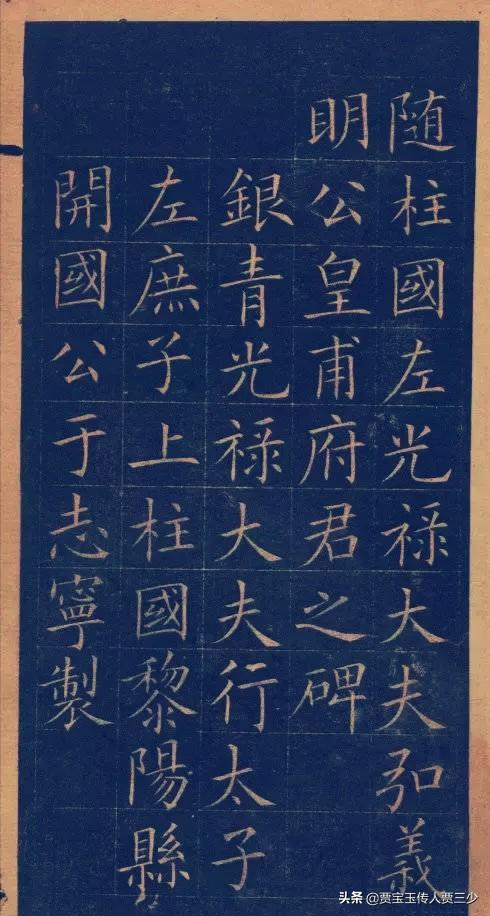 随柱國左光禄大夫弘義
明公皇甫府君之碑
銀青光禄大夫行太子
左庶子上柱國黎陽縣
開國公于志寧製
头条 @贾宝玉传人贾三少